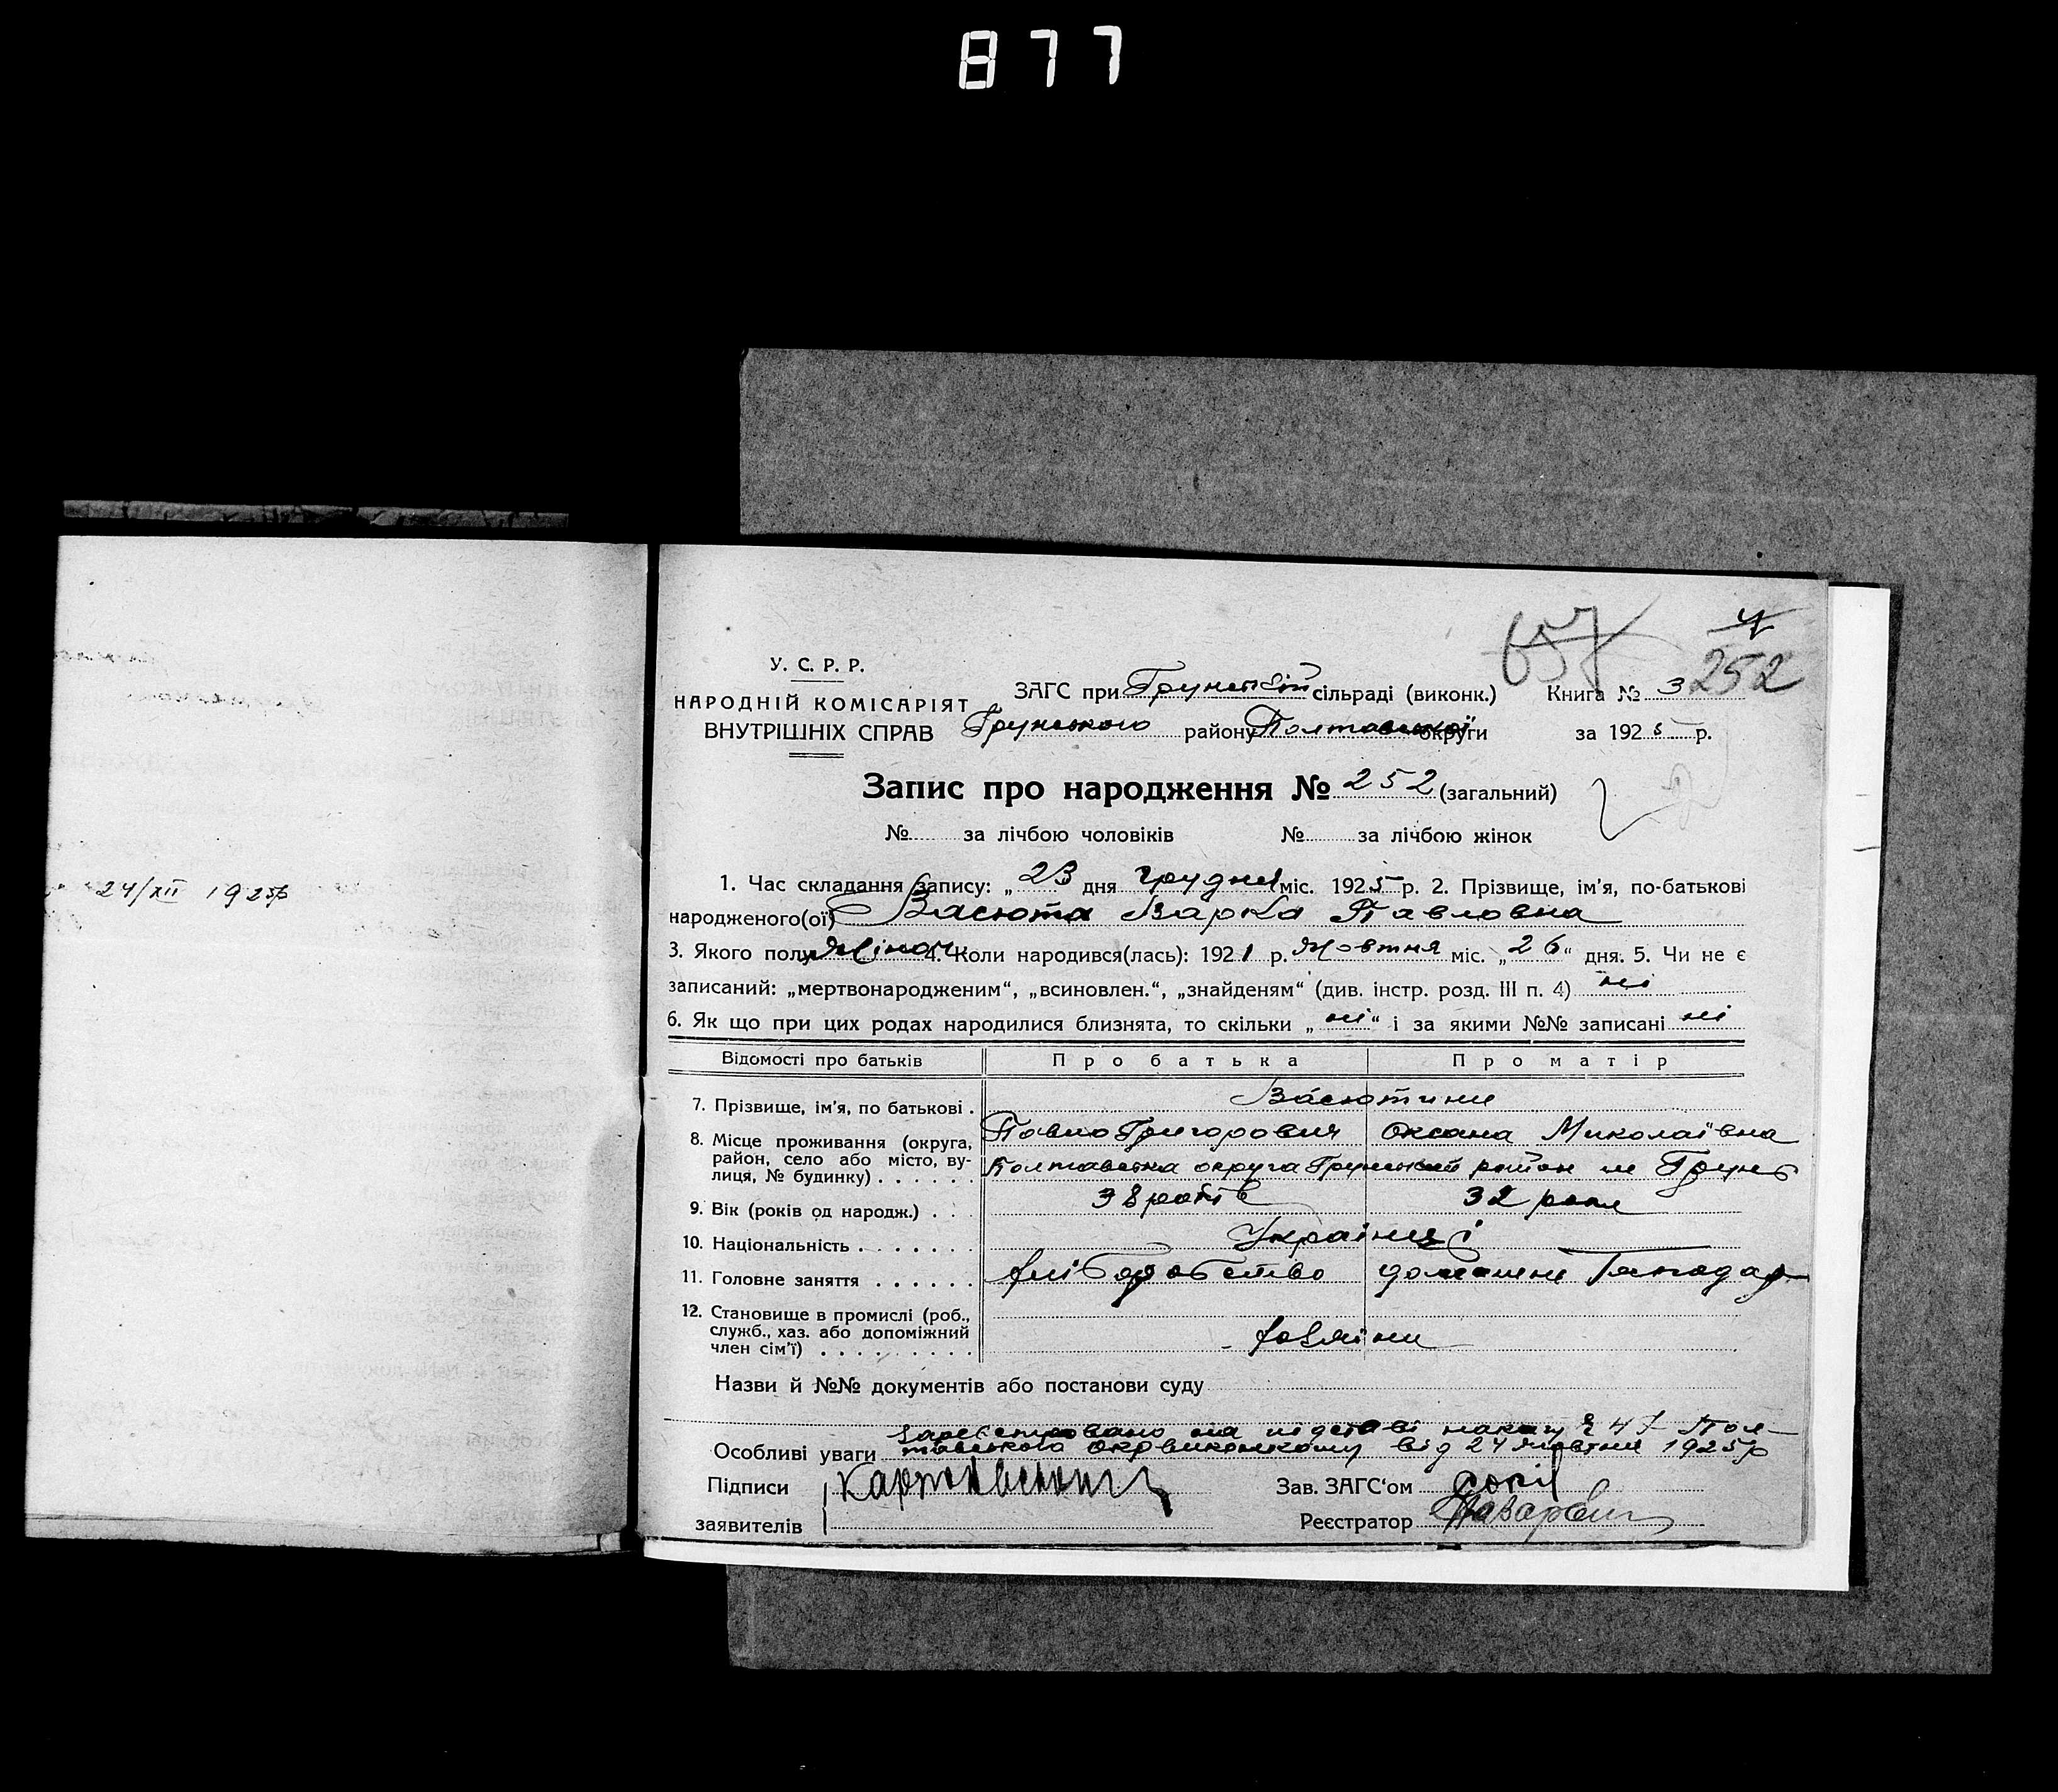 877
24/XII 1925р
657
252
У. С. Р. Р.
НАРОДНІЙ КОМІСАРІЯТ
ВНУТРІШНІХ СПРАВ
ЗАГС при Грунській сільраді (виконк.) Книга № 3
Грунського району Полтавської округи за 1925 р.
Запис про народження № 252 (загальний)
№ за лічбою чоловіків № за лічбою жінок
1. Час складання запису: „ 23 дня грудня міс. 1925 р. 2. Прізвище, ім'я, по-батькові
народженого(ої) Васюта Варка Павловна
3. Якого полу жіноч 4. Коли народився(лась): 1921 р. жовтня міс. „26" дня. 5. Чи не є
записаний: „мертвонародженим“, „всиновлен.“, „знайденям“ (див. інстр. розд. III п. 4) ні
6. Як що при цих родах народилися близнята, то скільки „ ні “ і за якими №№ записані ні
Відомості про батьків Про батька Про матір
7. Прізвище, ім'я, по батькові . Васютини
Павло Григорович Оксана Миколаївна
8. Місце проживання (округа,
район, село або місто, ву-
лиця, № будинку) . . . . . . Полтавська округа Грунський район м Грунь
9. Вік (років од народж.) . . . 38 років 32 роки
10. Національність . . . . . . . Українці
11. Головне заняття . . . . . . хліборобство домашнє Господар
12. Становище в промислі (роб.,
служб., хаз. або допоміжний
член сім'ї) . . . . . . . . . хазяїни
Назви й №№ документів або постанови суду
Особливі уваги зареєстровано на підставі наказу № 47 Пол-
тавського окрвиконкому від 24 жовтня 1925р
Підписи
заявителів
Зав. ЗАГС‘ом
Реєстратор